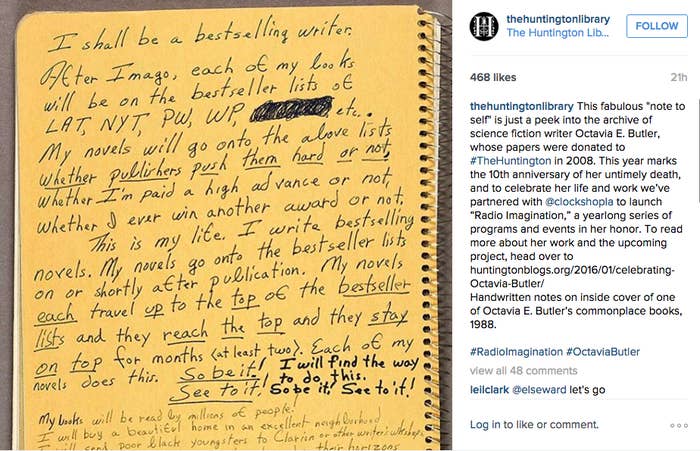 I shall be a bestselling writer.
After Imago, each of my books
will be on the bestseller lists of
LAT, NYT, PW, WP, etc.
My novels will go onto the above lists
whether publishers push them hard or not,
whether I'm paid a high advance or not,
whether I ever win another award or not.
This is my life. I write bestselling
novels. My novels go onto the bestseller lists
on or shortly after publication. My novels
each travel up to the top of the bestseller
lists and they reach the top and they stay
on top for months (at least two). Each of my
novels does this. So be it! I will find the way
to do this.
See to it! So be it! See to it!
My books will be read by millions of people!
I will buy a beautiful home in an excellent neighborhood
I will send poor black youngsters to Clarion or other writer's workshops
their horizons
thehuntingtonlibrary
The Huntington Lib...
FOLLOW
468 likes
21h
thehuntingtonlibrary This fabulous "note to
self" is just a peek into the archive of
science fiction writer Octavia E. Butler,
whose papers were donated to
#TheHuntington in 2008. This year marks
the 10th anniversary of her untimely death,
and to celebrate her life and work we've
partnered with @clockshopla to launch
"Radio Imagination," a yearlong series of
programs and events in her honor. To read
more about her work and the upcoming
project, head over to
huntingtonblogs.org/2016/01/celebrating-
Octavia-Butler/
Handwritten notes on inside cover of one
of Octavia E. Butler's commonplace books,
1988.
#RadioImagination #OctaviaButler
view all 48 comments
leilclark @elseward let's go
Log in to like or comment.